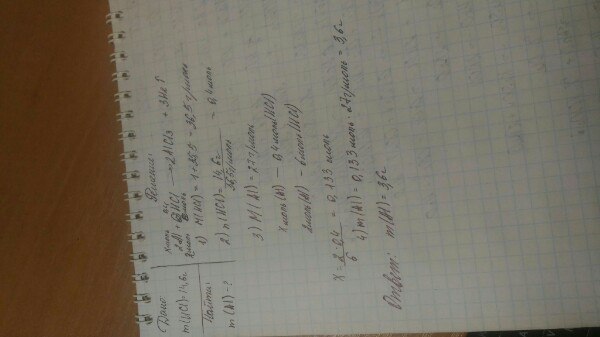 Дано:
m(HCl)=14,6г
Найти:
m(Al)-?
Решение:
x моль 0,4
2Al + 6HCl → 2AlCl3 + 3H2↑
2моль 6моль
1) M(HCl) = 1+35,5 = 36,5 г/моль
2) n(HCl) = 14,6г / 36,5г/моль = 0,4 моль
3) M(Al) = 27 г/моль
x моль (Al) – 0,4 моль (HCl)
2моль (Al) – 6моль (HCl)
x = 2·0,4 / 6 = 0,133 моль
4) m(Al) = 0,133 моль · 27г/моль = 3,6г
Ответ: m(Al) = 3,6г